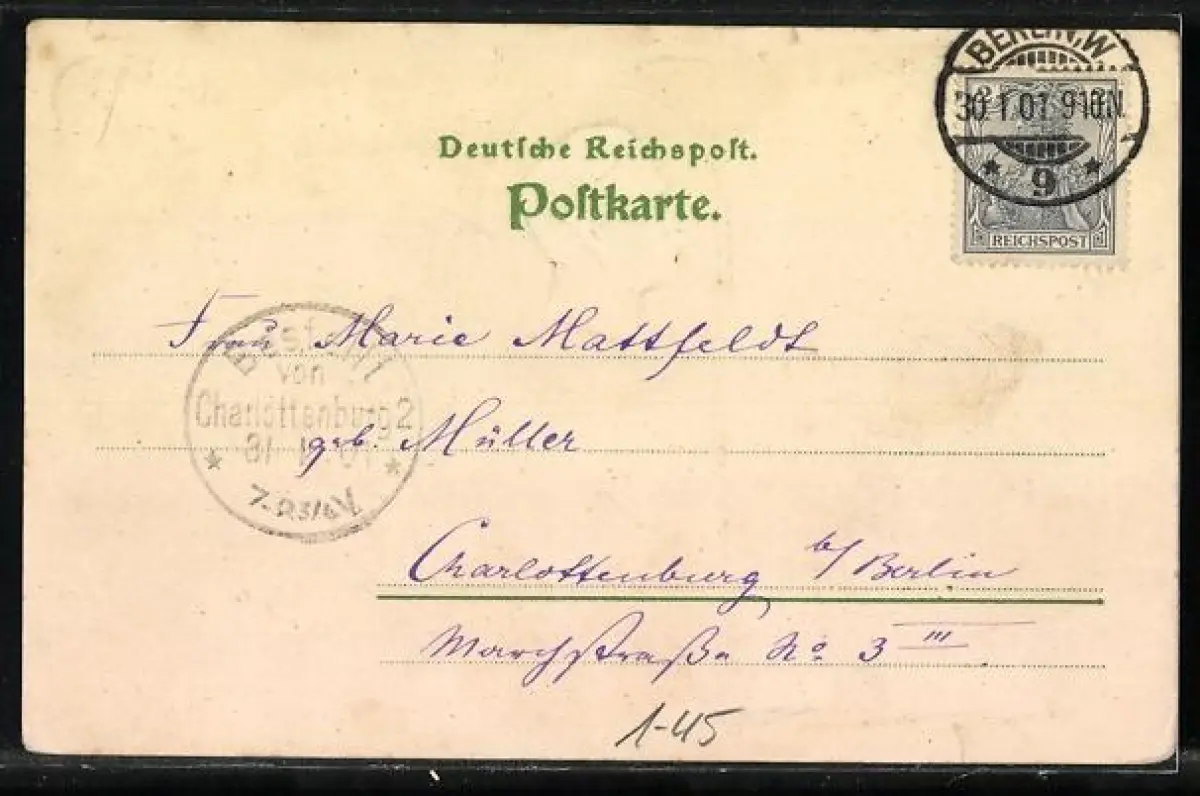 BERLIN, W
30.1.01. 9-10N.
* 9 *
2 2
REICHSPOST
Deutſche Reichspoſt.
Poſtkarte.
Frau Marie Mattfeldt
geb. Müller
Bestellt
von
Charlottenburg 2
31
Charlottenburg b/Berlin
Marchstraße No 3 III
1-45